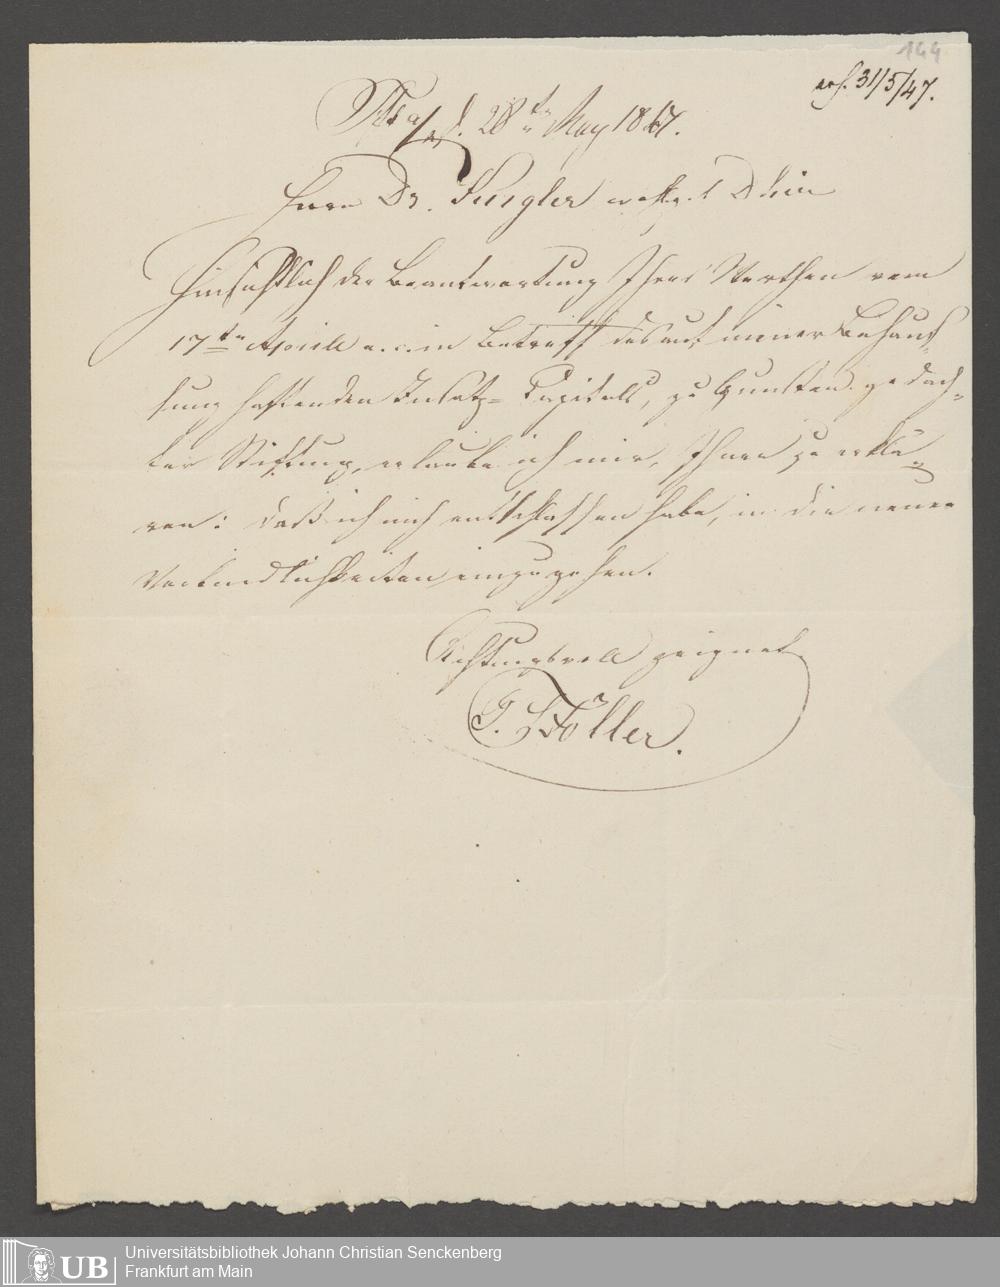 144
erh. 31/5/47.
28ten May 1847.
Herrn Dr. wohlg. Dhier
Hinsichtlich der Beantwortung Ihres Werthen vom
17ten Aprill a. c. in Betreff des auf meiner Behau¬
sung haftenden Insatz= Capitals, zu Gunsten gedach¬
ter Stiftung, erlaube ich mir, Ihnen zu erklä¬
ren: daß ich mich entschlossen habe, in die neuen
Verbindlichkeiten einzugehen.
Achtungsvoll zeignet
G. Stöller.
UB
Universitätsbibliothek Johann Christian Senckenberg
Frankfurt am Main